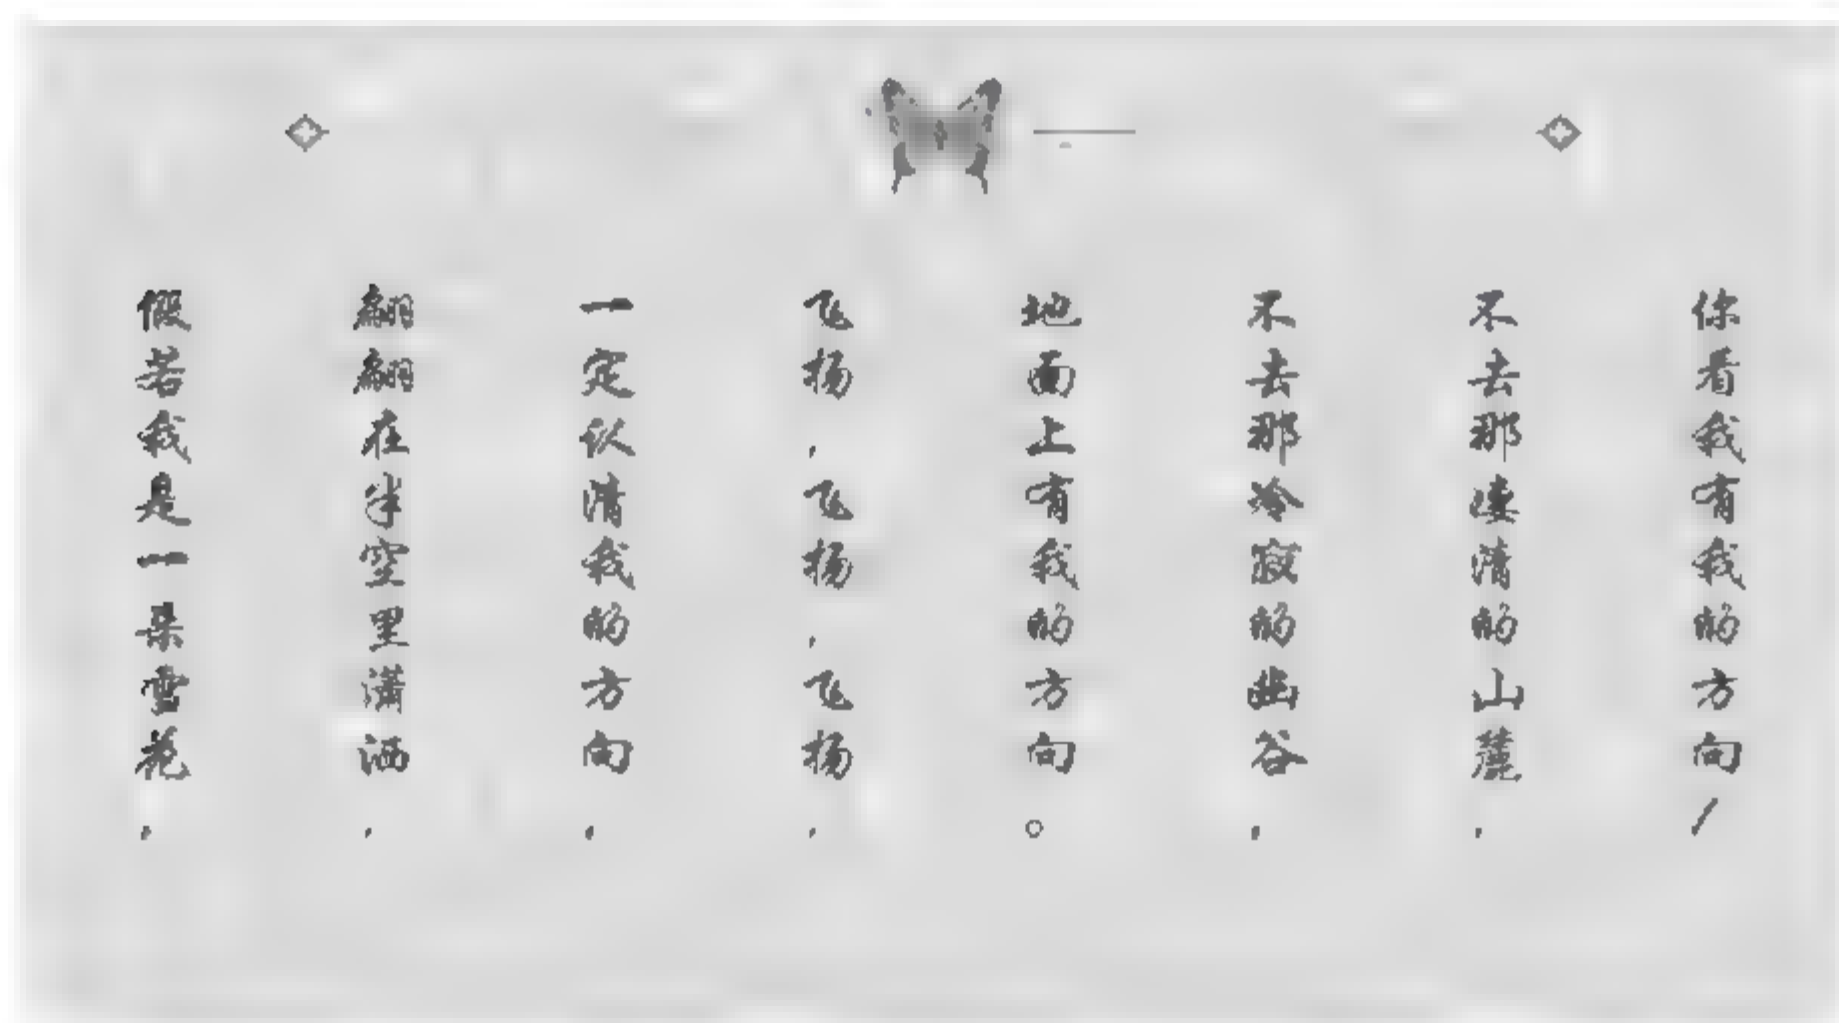 假若我是一朵雪花,
翩翩在半空里潇洒,
一定认清我的方向,
飞扬,飞扬,飞扬,
地面上有我的方向。
不去那冷寂的幽谷,
不去那凄清的山麓,
你看我有我的方向/